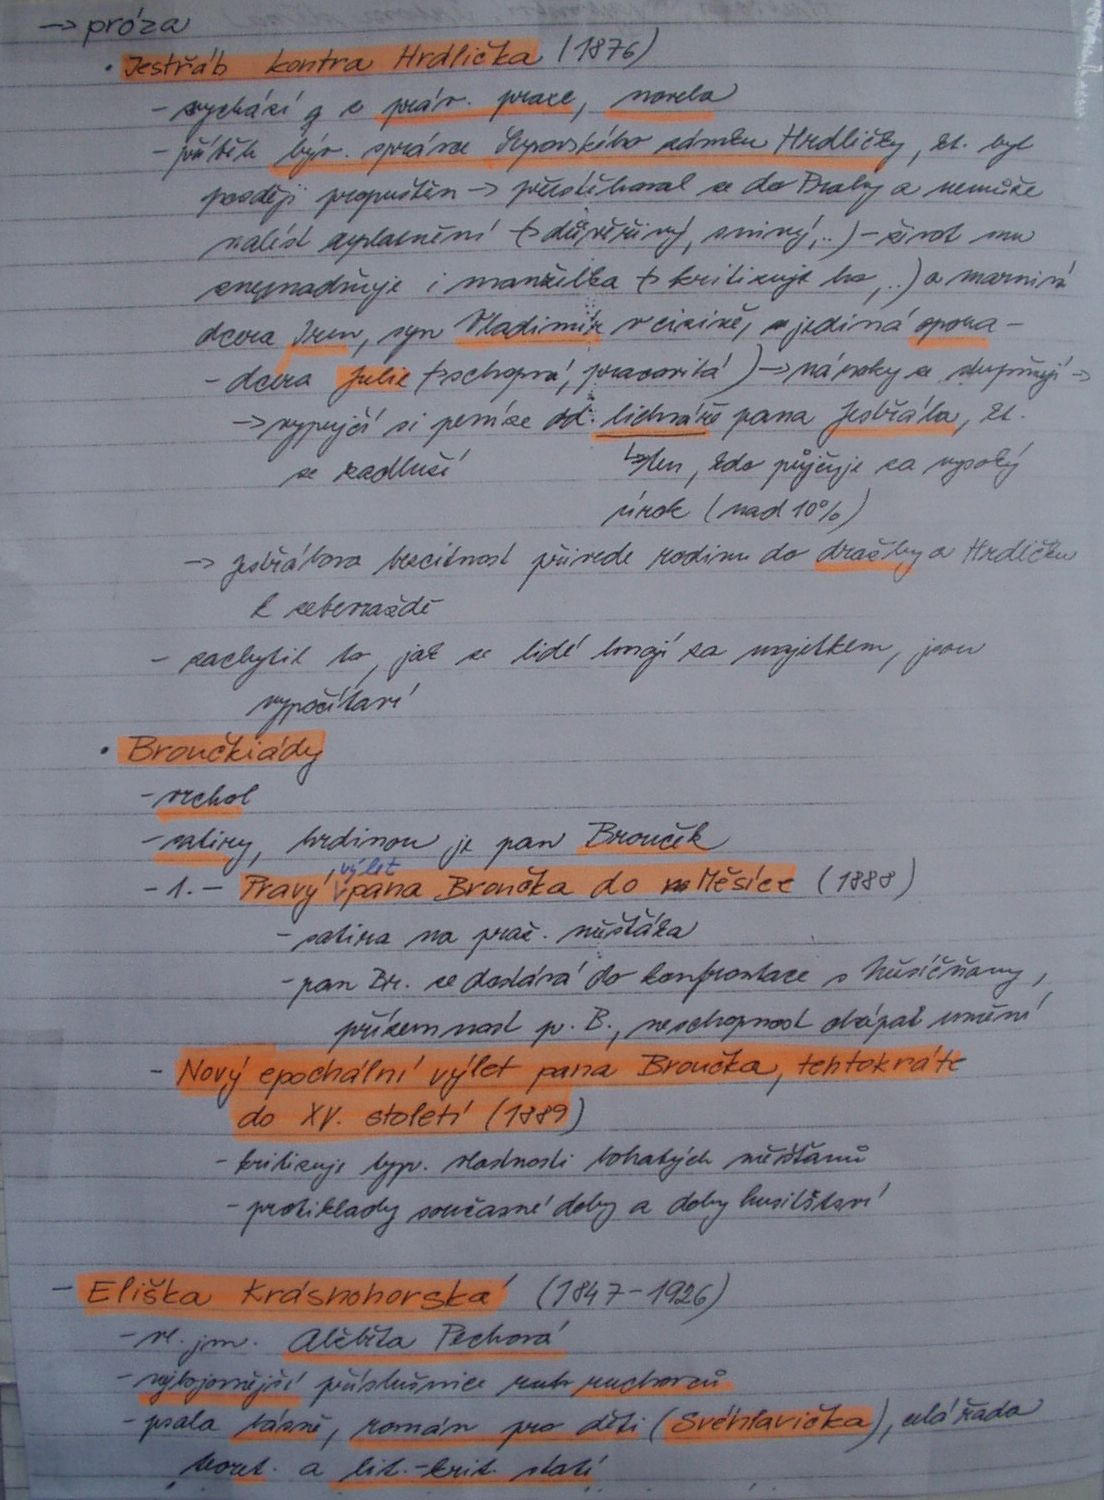 → próza
• Jestřáb kontra Hrdlička (1876)
- vychází z práv. praxe, novela
- příběh býv. správce Kyjovského zámku Hrdličky, kt. byl
později propuštěn → přestěhoval se do Prahy a nemůže
nalézt uplatnění (→ důvěřivý, snivý,..) - život mu
znepnadňuje i manželka (→ kritizuje ho,..) a marnivá
dcera Iren, syn Vladimír v cizině, jediná opora -
- dcera Julie (→ schopná, pracovitá) → nároky se stupňují →
→ vypůjčí si peníze od lichváře pana Jestřába, kt.
se zadluží ↳ ten, kdo půjčuje za vysoký
úrok (nad 10%)
→ Jestřábova bezcitnost přivede rodinu do dražby a Hrdličku
k sebevraždě
- zachytil to, jak se lidé honí za majetkem, jsou
vypočítaví
• Broučkiády
- vrchol
- satiry, hrdinou je pan Brouček
- 1. - Pravý výlet pana Broučka do Měsíce (1888)
- satira na praž. měšťáka
- pan Br. se dostává do konfrontace s Měsíčňany,
přízemnost p. B., neschopnost chápat umění
- Nový epochální výlet pana Broučka, tentokráte
do XV. století (1889)
- kritizuje typ. vlastnosti bohatých měšťanů
- protiklady současné doby a doby husitství
- Eliška Krásnohorská (1847-1926)
- vl. jm. Alčběta Pechová
- nejbojovnější příslušnice ruchovců
- psala básně, román pro děti (Svéhlavička), celá řada
teoret. a lit.-krit. statí